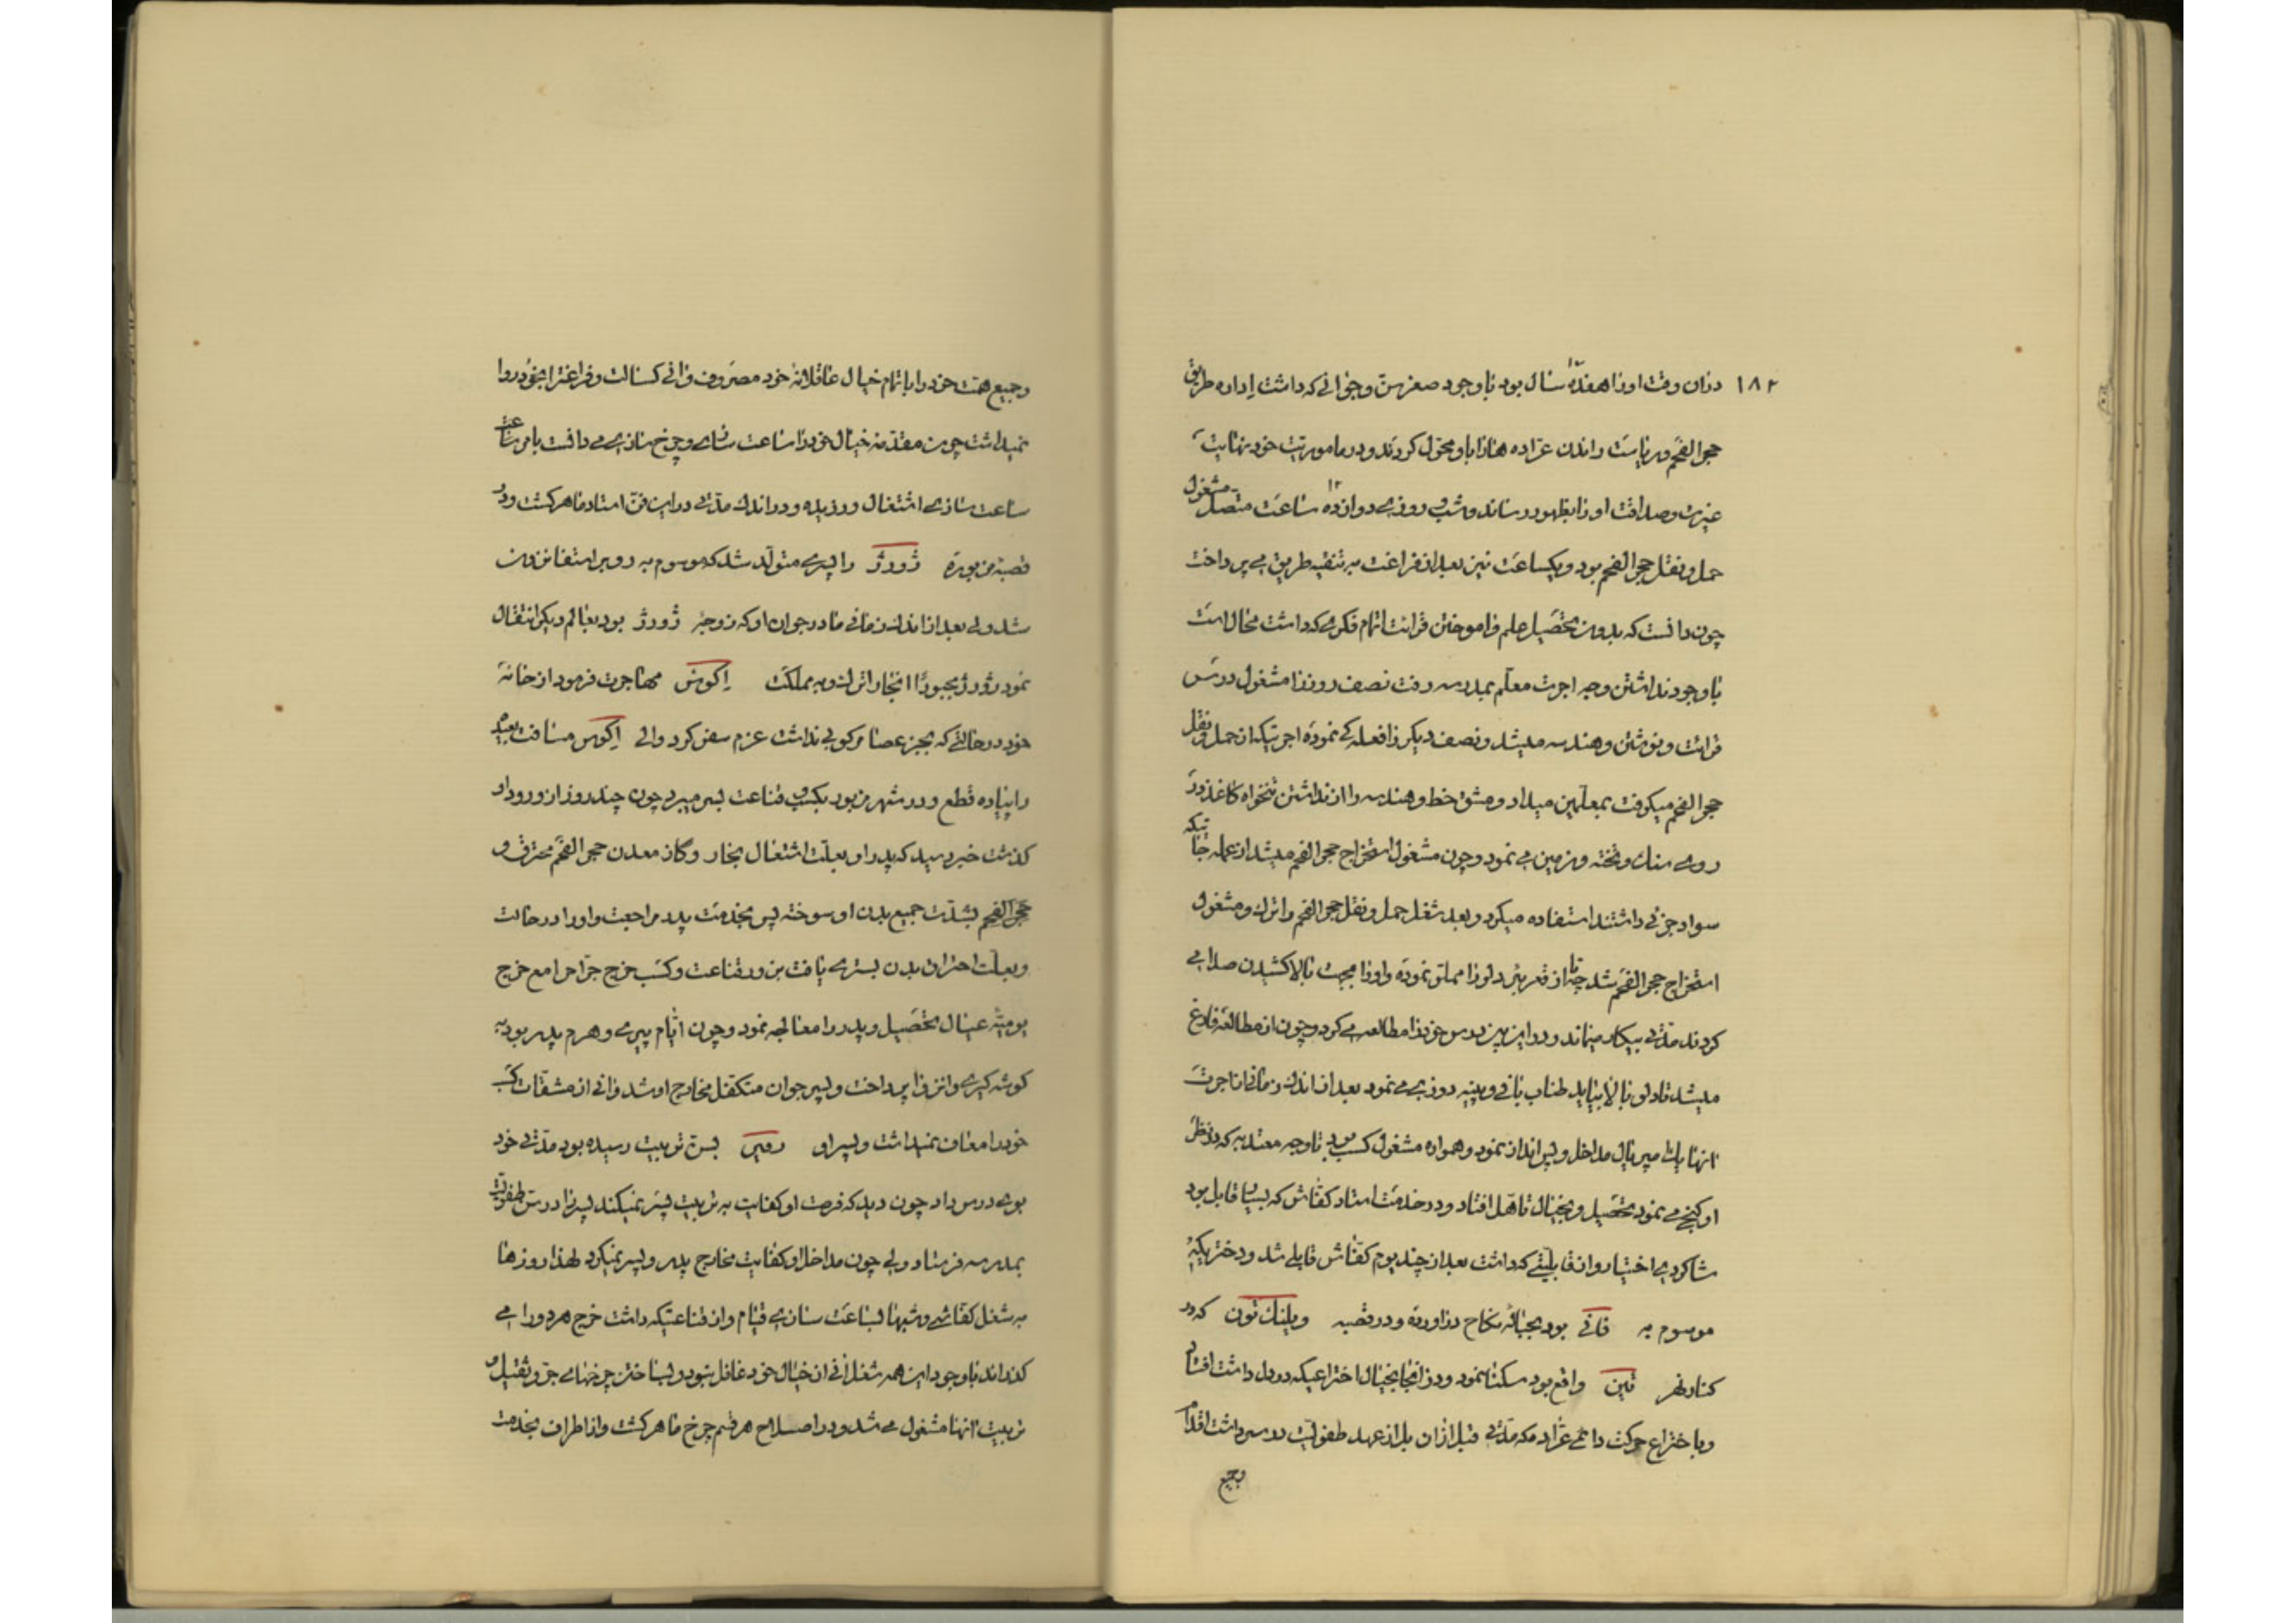 ۱۸۲
دران وقت او را هفده سال بود با وجود صغر سن و جوانی که داشت اداره طریق
حجر الفحم و ریاست راندن عراده ها را باو محول کردند و در ماموریت خود نهایت
غیرت و صداقت او را بظهور رساند و شب و روزی دوازده ۱۲ ساعت متصل مشغول
حمل و نقل حجر الفحم بود و یکساعت نیز بعد از فراغت به تنقیه طریق می پرداخت
چون دانست که بدون تحصیل علم و اموختن قرائت اتمام فکری که داشت محال است
با وجود نداشتن وجه اجرت معلم بمدرسه رفت نصف روز را مشغول درس
قرائت و نوشتن و هندسه میشد و نصف دیگر را فعله کی نموده اجرتیکه از حمل و نقل
حجر الفحم میگرفت بمعلمین میداد و مشق خط و هندسه را از نداشتن تنخواه کاغذ در
روی سنک و تخته و زمین می نمود و چون مشغول استخراج حجر الفحم میشد از عمله جاتیکه
سواد جزئی داشتند استفاده میکرد و بعد شغل حمل و نقل حجر الفحم را ترک و مشغول
استخراج حجر الفحم شد چه تا از قعر بئر دلو را مملو نموده و او را بجهت بالا کشیدن صدا می
کردند مدتی بیکار میماند و در این بین درس خود را مطالعه می کرد و چون از مطالعه فارغ
میشد تا دلو بالا بیاید طناب بافی و پینه دوزی می نمود بعد از اندک زمانی با اجرت
انها یک میر نال مداخل و پس انداز نمود و همواره مشغول کسب بود تا وجه معتد به که در نظر
او گنجی می نمود تحصیل و بخیال تاهل افتاد و در خدمت استاد کفاش که بسیار قابل بود
شاگردی اختیار و از قابلیتی که داشت بعد از چند یوم کفاش قابلی شد و دختریکه
موسوم به فانی بود بحباله نکاح در اورده و در قصبه ویلنک تون که در
کنار نهر تین واقع بود سکنا نمود و در انجا بخیال اختراعیکه در دل داشت افتاد
و با ختراع حرکت دائمی عراده که مدتی قبل ازان بل از عهد طفولیت در سر داشت اقدام
وجمیع
وجمیع همت خود را باتمام خیال عاقلانه خود مصروف و انی کسالت و فراغت را بخود روا
نمیداشت چون مقدمه خیال خود را ساعت سازی و چرخ سازی می دانست بامر ساعت
ساعت سازی اشتغال ورزیده و در اندک مدتی در این فن استاد ماهر گشت و در
قصبه مزبوره ژورژ را پسری متولد شد که موسوم به روبر استفانزون
شد ولی بعد از اندک زمانی مادر جوان او که زوجه ژورژ بود بعالم دیگر انتقال
نمود ژورژ مجبورًا انجا را ترک و به مملکت اکوس مهاجرت فرمود از خانه
خود در حالتی که بجز عصا مرکوبی نداشت عزم سفر کرد و الی اکوس مسافت بعیده
را پیاده قطع و در شهر مزبور بکسب و قناعت بسر میبرد چون چند روز از ورود او
گذشت خبر رسید که پدر او بعلت اشتغال بخار و گاز معدن حجر الفحم محترق و
حجر الفحم بشدت جمیع بدن او سوخته پس بخدمت پدر مراجعت و او را در حالت
و بعلت احتراق بدن بستری یافت بزور قناعت و کسب خرج جراح را مع خرج
یومیه عیال تحصیل و پدر را معالجه نمود و چون ایام پیری و هرم پدر بود به
گوشه گیری و انزوا پرداخت و پسر جوان متکفل مخارج او شد و انی از مشقات کسب
خود را معاف نمیداشت و پسر او روبر بسن تربیت رسیده بود مدتی خود
بوی درس داد چون دید که فرصت او کفایت به تربیت پسر نمیکند پسر را در سن طفولیت
بمدرسه فرستاد ولی چون مداخل او کفایت مخارج پدر و پسر نمیکرد لهذا روزها
به شغل کفاشی و شبها بساعت سازی قیام و از قناعتیکه داشت خرج هر دو را می
گذراند با وجود این همه شغل انی از خیال خود غافل نبود و بساختن چرخهای جر و ثقیل و
تربیت انها مشغول می شد و در اصلاح هر قسم چرخ ماهر گشت و از اطراف بخدمت